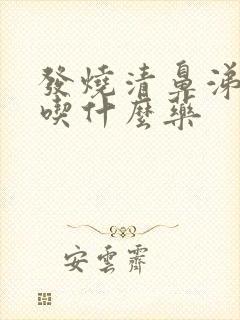 發燒清鼻涕
喫什麼藥
安雲霽